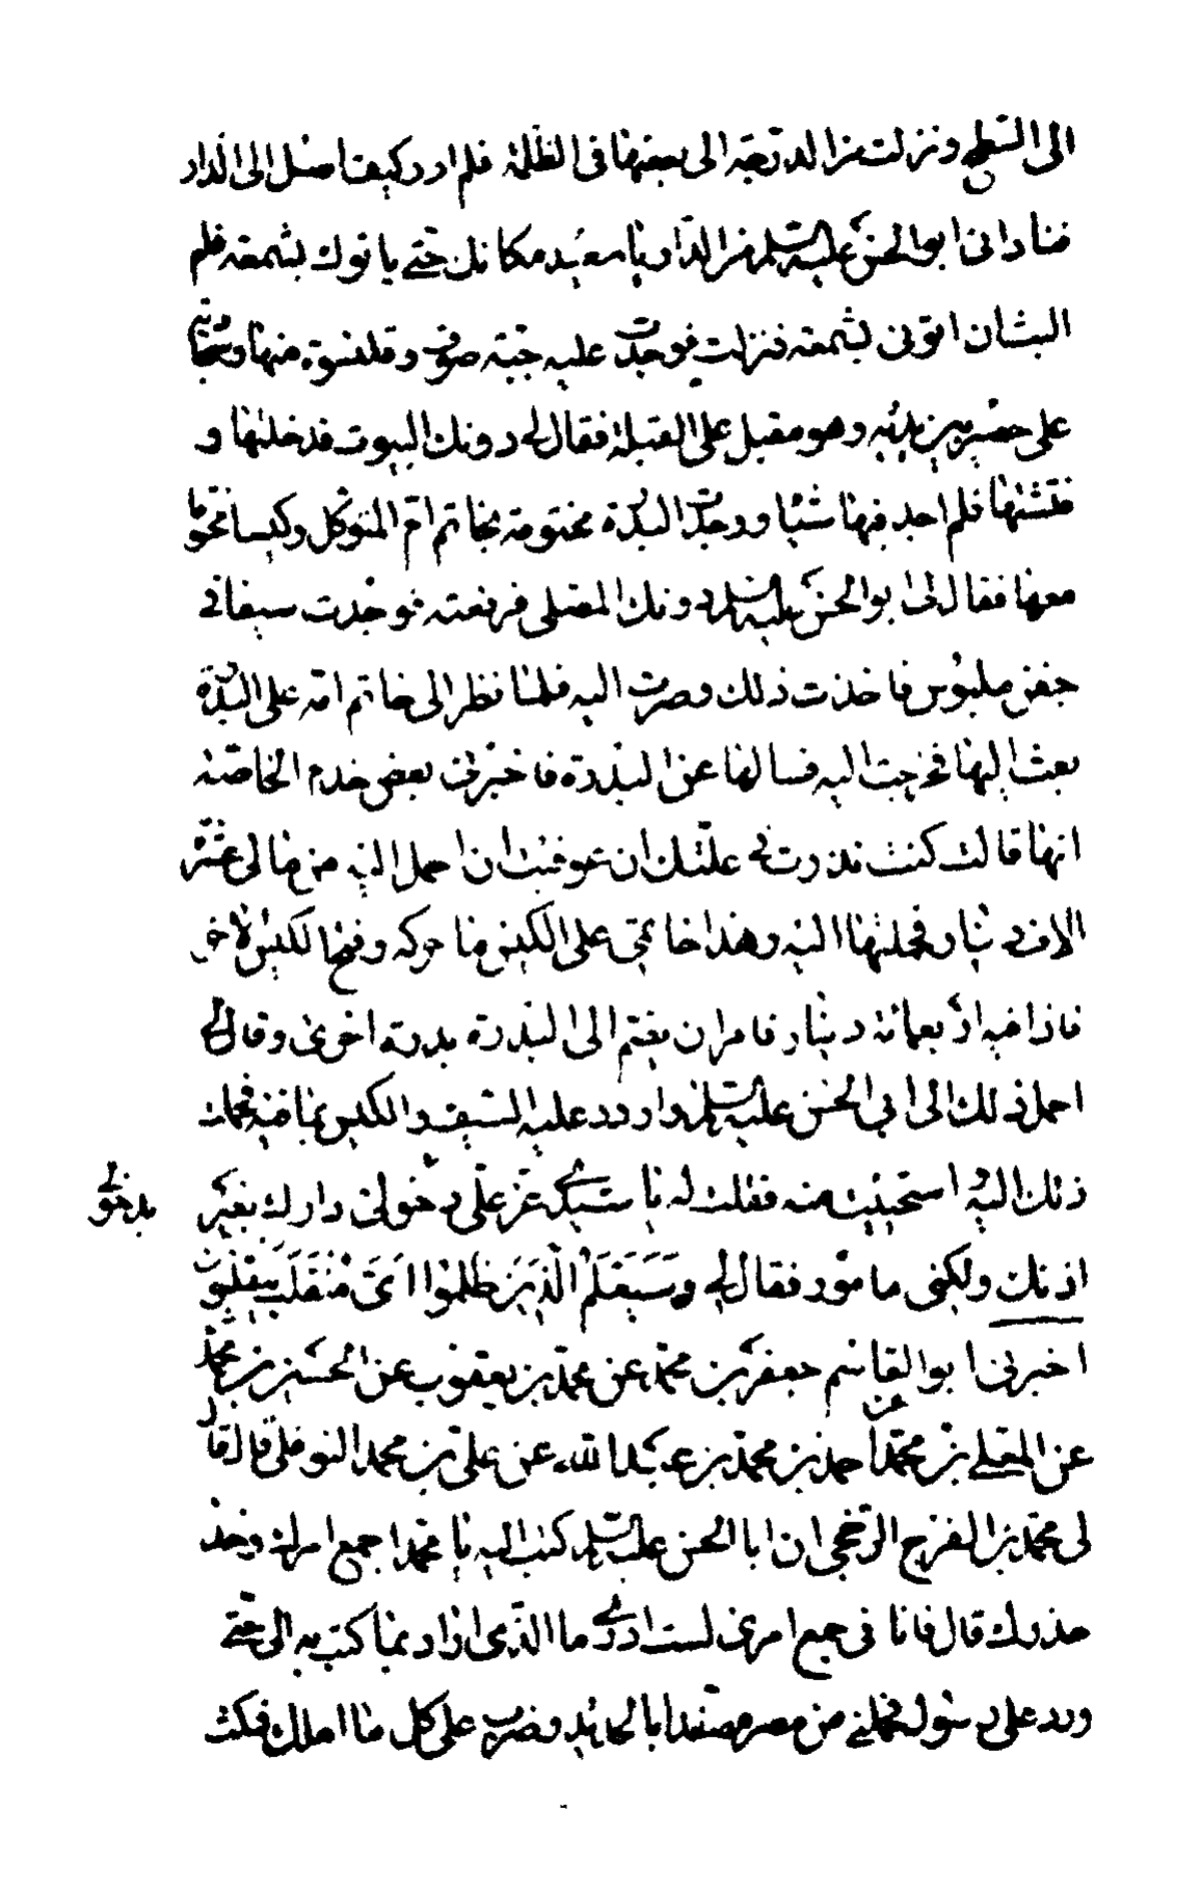 الى السطح ونزلت من الدرجة الى بعضها فى الظلمة فلم ادر كيف اصل الى الدار
فنادانى ابو الحسن عليه السلم من الدار يا سعيد مكانك حتى ياتوك بشمعة فلم
البث ان اتونى بشمعة فنزلت فوجدت عليه جبة صوف وقلنسوة منها وسجادته
على حصير بين يديه وهو مقبل على القبلة فقال لى دونك البيوت فدخلتها و
فتشتها فلم اجد فيها شيئا ووجدت البدرة مختومة بخاتم ام المتوكل وكيسا مختوما
معها فقال لى ابو الحسن عليه السلم دونك المصلى فرفعته فوجدت سيفا فى
جفن ملبوس فاخذت ذلك وصرت اليه فلما نظر الى خاتم امه على البدرة
بعث اليها فخرجت اليه فسالها عن البدرة فاخبرنى بعض خدم الخاصة
انها قالت كنت نذرت فى علتك ان عوفيت ان احمل اليه من مالى عشرة
الاف دينار فحملتها اليه وهذا خاتمى على الكيس ما حركه وفتح الكيس الاخر
فاذا فيه اربعمائة دينار فامر ان يضم الى البدرة بدرة اخرى وقال لى
احمل ذلك الى ابى الحسن عليه السلم واردد عليه السيف والكيس بما فيه فحملت
ذلك اليه استحييت منه فقلت له يا سيدى عز على دخولى دارك بغير
بدخولى
اذنك ولكنى مامور فقال لى وَسَيَعْلَمُ الَّذينَ ظَلَمُوا اَىَّ مُنْقَلَبٍ يَنْقَلِبُونَ
اخبرنى ابو القاسم جعفر بن محمد عن محمد بن يعقوب عن الحسين بن محمد
عن المعلى بن محمد عن احمد بن محمد بن عبد الله عن على بن محمد النوفلى قال قال
لى محمد بن الفرج الرخجى ان ابا الحسن عليه السلم كتب اليه يا محمد اجمع امرك وخذ
حذرك قال فانا فى جمع امرى لست ادرى ما الذى اراد بما كتب به الى حتى
ورد على رسول فحملنى من مصر مصفدا بالحديد وضرب على كل ما املك فمكثت